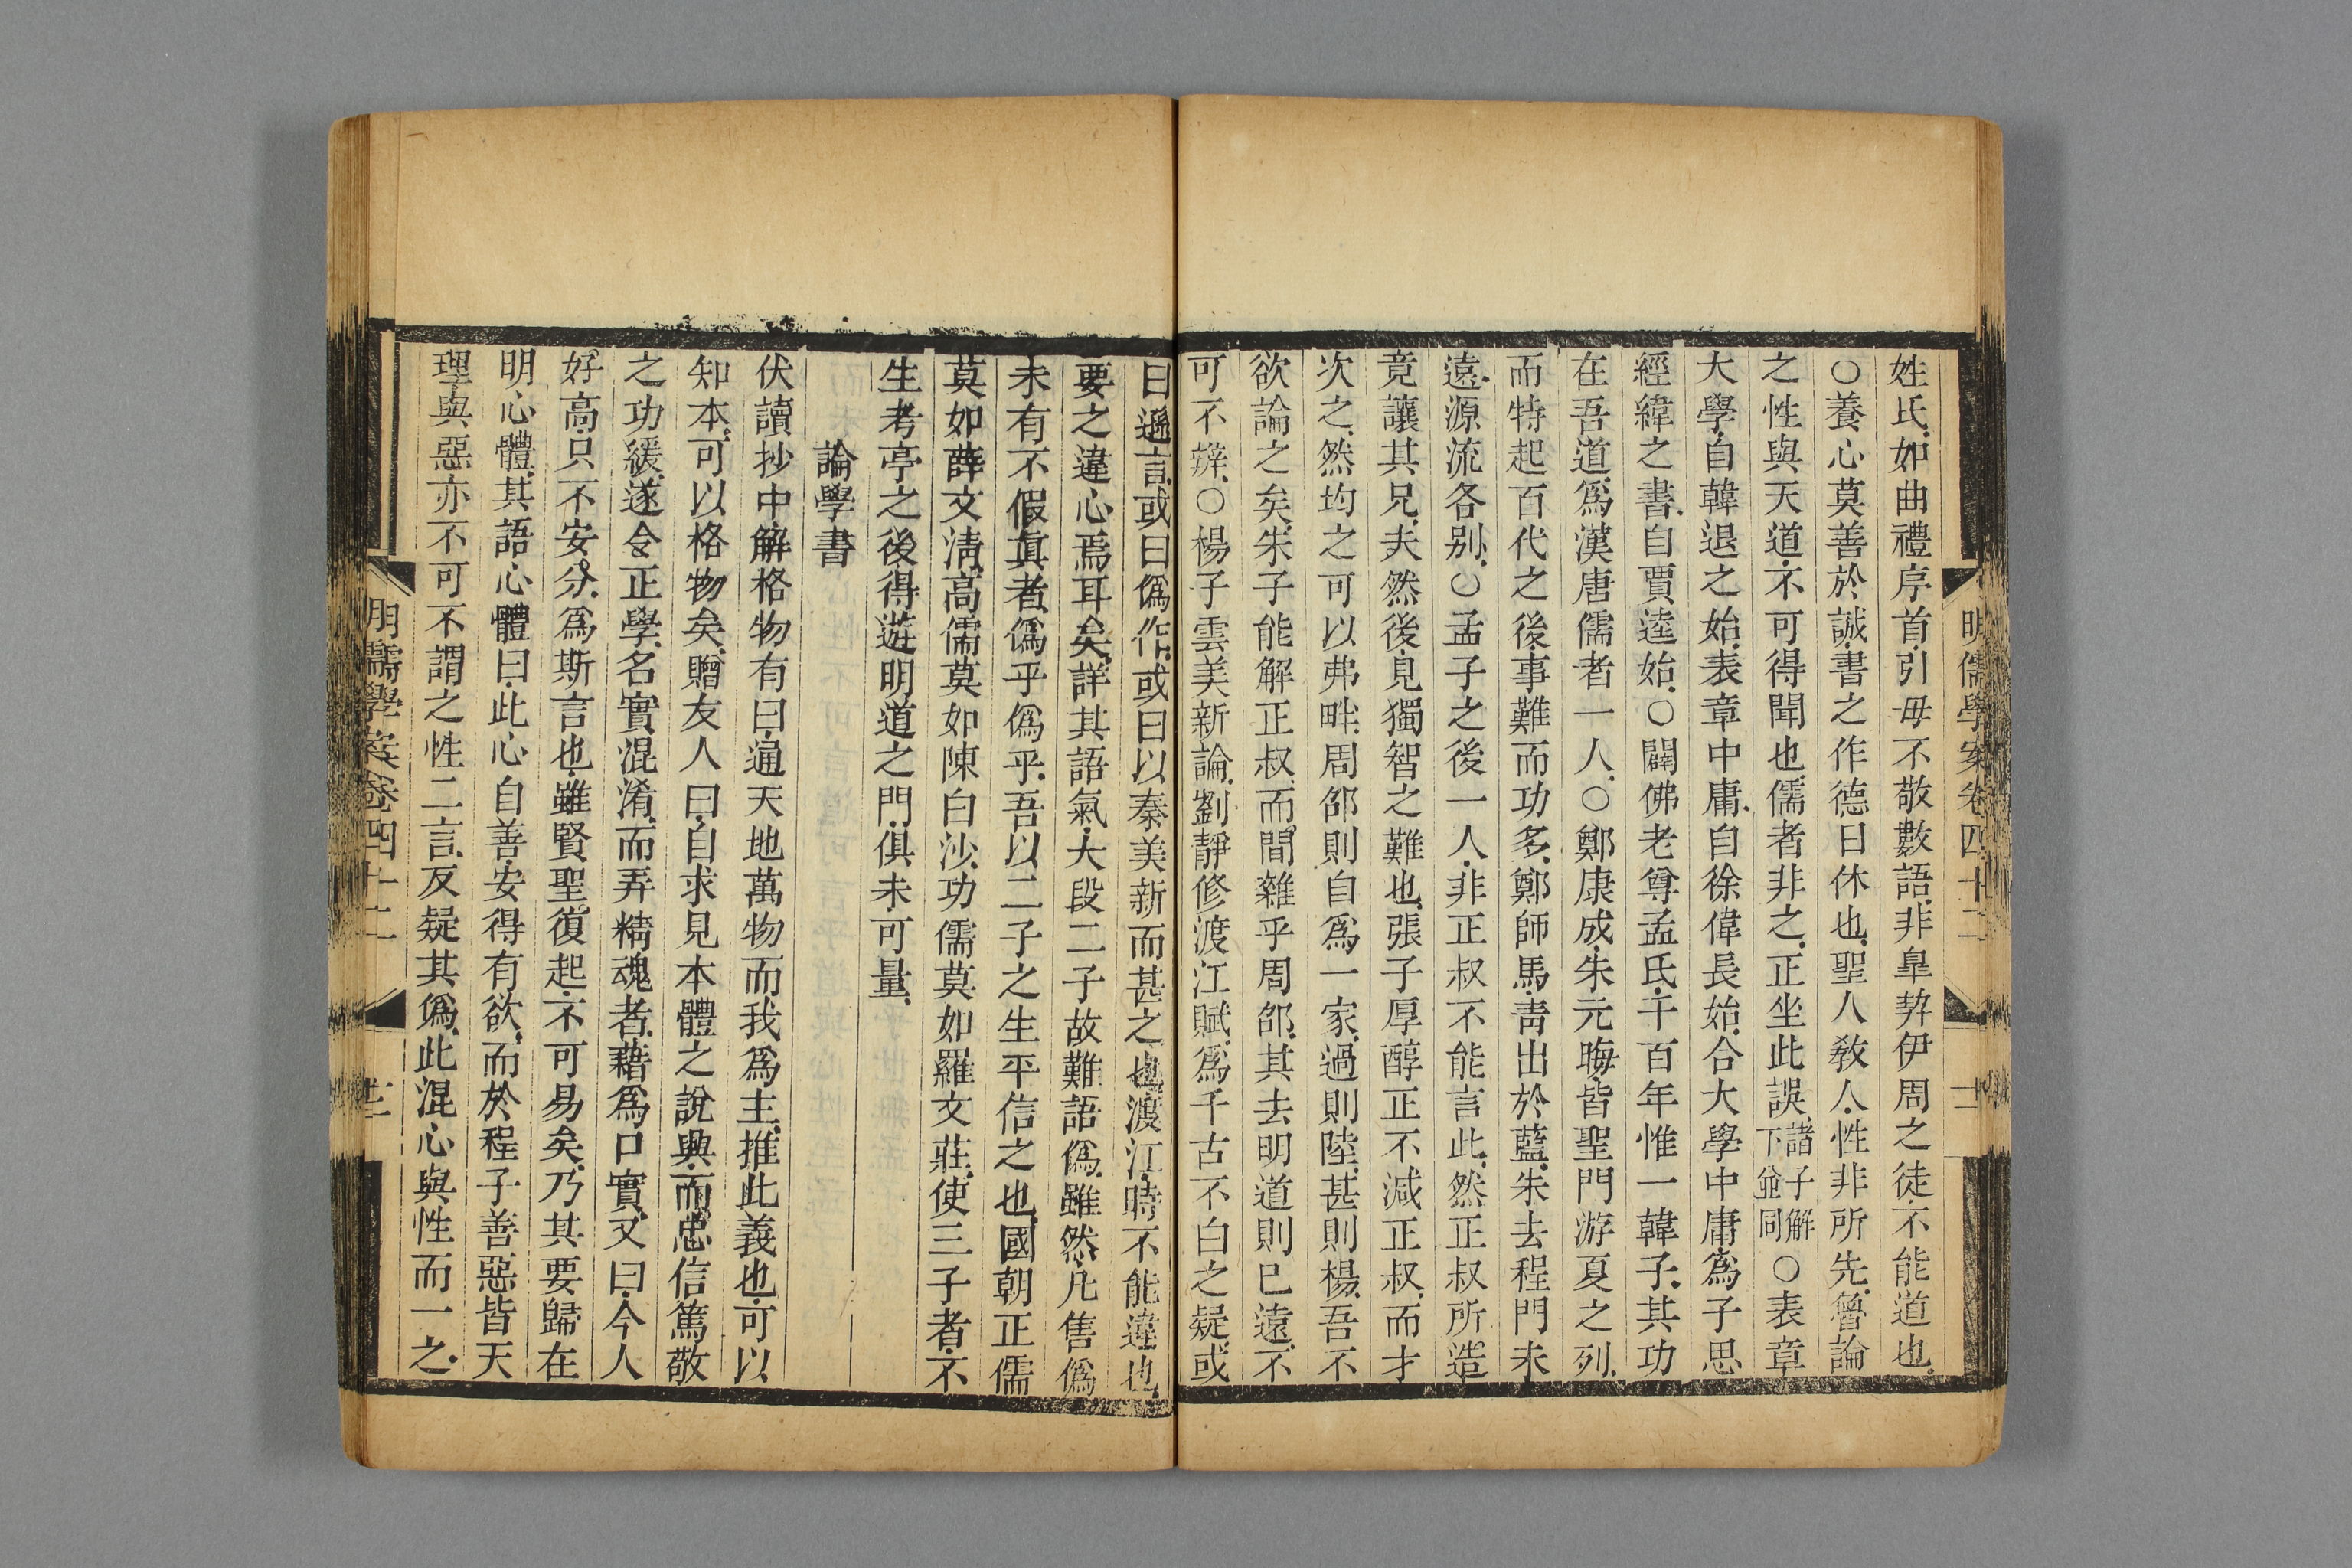 明儒學案卷四十二
姓氏如曲禮序首引毋不敬數語非臯契伊周之徒不能道也
○養心莫善於誠書之作德日休也聖人敎人性非所先魯論
之性與天道不可得聞也儒者非之正坐此誤諸子解下並同○表章
大學自韓退之始表章中庸自徐偉長始合大學中庸爲子思
經緯之書自賈逵始○闢佛老尊孟氏千百年惟一韓子其功
在吾道爲漢唐儒者一人○鄭康成朱元晦皆聖門游夏之列
而特起百代之後事難而功多鄭師馬靑出於藍朱去程門未
遠源流各别○孟子之後一人非正叔不能言此然正叔所造
竟讓其兄夫然後見獨智之難也張子厚醇正不減正叔而才
次之然均之可以弗畔周邵則自爲一家過則陸甚則楊吾不
欲論之矣朱子能解正叔而間雜乎周邵其去明道則已遠不
可不辨○楊子雲美新論劉靜修渡江賦爲千古不白之疑或
曰遜言或曰僞作或曰以秦美新而甚之也渡江時不能違也
要之違心焉耳矣詳其語氣大段二子故難語僞雖然凡售僞
未有不假眞者僞乎僞乎吾以二子之生平信之也國朝正儒
莫如薛文淸高儒莫如陳白沙功儒莫如羅文莊使三子者不
生考亭之後得遊明道之門俱未可量
論學書
伏讀抄中解格物有曰通天地萬物而我爲主推此義也可以
知本可以格物矣贈友人曰自求見本體之說興而忠信篤敬
之功緩遂令正學名實混淆而弄精魂者藉爲口實又曰今人
好高只不安分爲斯言也雖賢聖復起不可易矣乃其要歸在
明心體其語心體曰此心自善安得有欲而於程子善惡皆天
理與惡亦不可不謂之性二言反疑其僞此混心與性而一之
明儒學案卷四十二